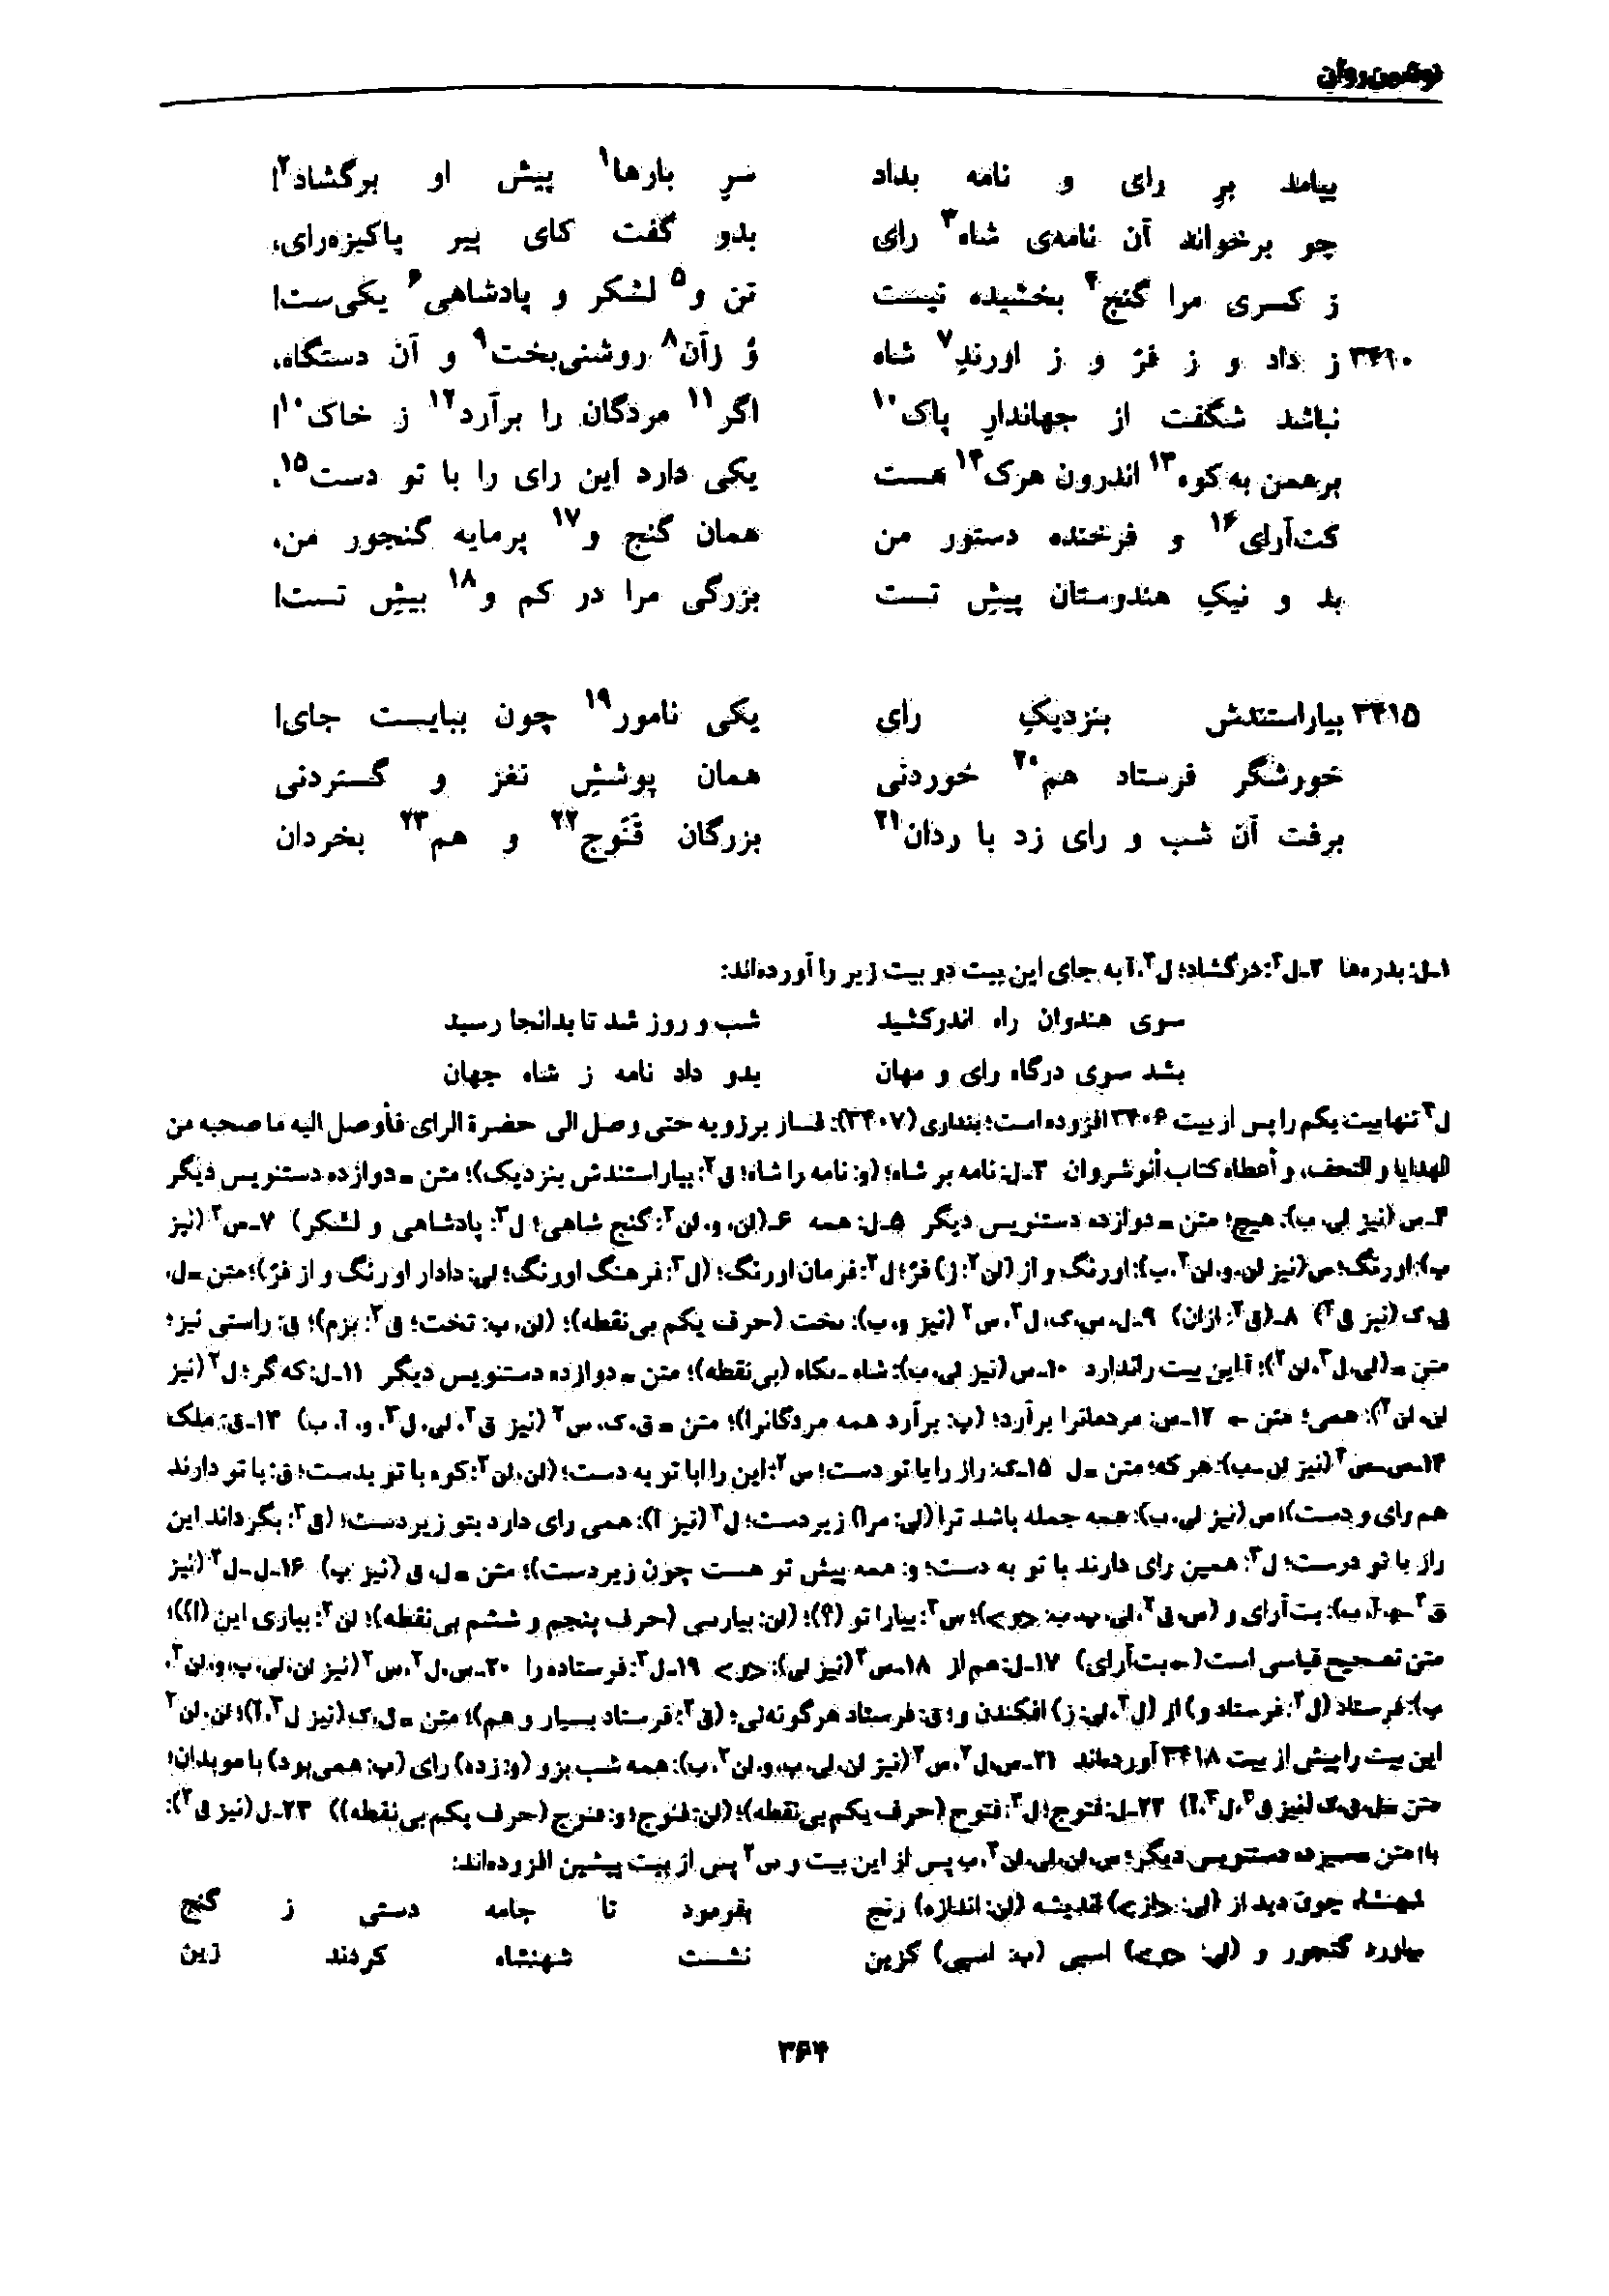 نوشین‌روان
بیامد بر رای و نامه بداد سر بارها۱ پیش او برگشاد۲!
چو برخواند آن نامه‌ی شاه۳ رای بدو گفت کای پیر پاکیزه‌رای،
ز کسری مرا گنج۴ بخشیده نیست تن و۵ لشکر و پادشاهی۶ یکی‌ست!
۳۴۱۰ ز داد و ز فرّ و ز اورندِ۷ شاه وُ زآن۸ روشنی‌بخت۹ و آن دستگاه،
نباشد شگفت از جهاندارِ پاک۱۰ اگر۱۱ مردگان را برآرد۱۲ ز خاک۱۰!
برهمن به‌کوه۱۳ اندرون هرک۱۴ هست یکی دارد این رای را با تو دست۱۵،
کت‌آرای۱۶ و فرخنده دستور من همان گنج و۱۷ پرمایه گنجور من،
بد و نیکِ هندوستان پیشِ تست بزرگی مرا در کم و۱۸ بیشِ تست!
۳۴۱۵ بیاراستندش بنزدیکِ رای یکی نامور۱۹ چون ببایست جای!
خورشگر فرستاد هم۲۰ خوردنی همان پوششِ نغز و گستردنی
برفت آن شب و رای زد با ردان۲۱ بزرگان قَنّوج۲۲ و هم۲۳ بخردان
۱ـ ل: بدره‌ها ۲ـ ل۲: درگشاد؛ ل۳، آ به جای این بیت دو بیت زیر را آورده‌اند:
سوی هندوان راه اندرکشید شب و روز شد تا بدانجا رسید
بشد سوی درگاه رای و مهان بدو داد نامه ز شاه جهان
ل۲ تنها بیت یکم را پس از بیت ۳۴۰۶ افزوده است؛ بنداری (۳۴۰۷): فسار برزویه حتی وصل الی حضرة الرای فأوصل الیه ما صحبه من
الهدایا و التحف، و أعطاه کتاب أنوشروان ۳ـ ل: نامه بر شاه؛ (و: نامه را شاه؛ ق۲: بیاراستندش بنزدیک)؛ متن = دوازده دستنویس دیگر
۴ـ س (نیز لی، ب): هیچ؛ متن = دوازده دستنویس دیگر ۵ـ ل: همه ۶ـ (لن، و، لن۲: گنج شاهی؛ ل۳: پادشاهی و لشکر) ۷ـ س۲ (نیز
پ): اورنگ؛ س (نیز لن، و، لن۲، ب): اورنگ و از (لن۲: ز) فرّ؛ ل۲: فرمان اورنگ؛ (ل۳: فرهنگ اورنگ؛ لی: دادار اورنگ و از فرّ)؛ متن = ل،
ق، ک (نیز ق۲) ۸ـ (ق۲: ازان) ۹ـ ل، س، ک، ل۲، س۲ (نیز و، ب): بخت (حرف یکم بی‌نقطه)؛ (لن، پ: تخت؛ ق۲: بزم)؛ ق: راستی نیز؛
متن = (لی، ل۳، لن۲)؛ آ این بیت را ندارد ۱۰ـ س (نیز لی، ب): شاه ـ نگاه (بی‌نقطه)؛ متن = دوازده دستنویس دیگر ۱۱ـ ل: که گر؛ ل۲ (نیز
لن، لن۲): همی؛ متن ← ۱۲ـ س: مردمانرا برآرد؛ (پ: برآرد همه مردگانرا)؛ متن = ق، ک، س۲ (نیز ق۲، لی، ل۳، و، آ، ب) ۱۳ـ ق: ملک
۱۴ـ س ـ س۲ (نیز لن ـ ب): هر که؛ متن = ل ۱۵ـ ک: راز را با تو دست؛ س۲: این را ابا تو به دست؛ (لن، لن۲: کوه با تو بدست؛ ق: با تو دارند
هم رای و دست)؛ س (نیز لی، ب): همه جمله باشد ترا (لی: مرا) زیردست؛ ل۲ (نیز آ): همی رای دارد بتو زیردست؛ (ق۲: بگرداند این
راز با تو درست؛ ل۳: همین رای دارند با تو به دست؛ و: همه پیش تو هست چون زیردست)؛ متن = ل، ق (نیز پ) ۱۶ـ ل ـ ل۲ (نیز
متن تصحیح قیاسی است (← بت‌آرای) ۱۷ـ ل: هم از ۱۸ـ س۲ (نیز لی): <و> ۱۹ـ ل۲: فرستاده را ۲۰ـ س، ل۲، س۲ (نیز لن، لی، پ، و، لن۲،
ب): فرستاد (ل۲: فرستاد و) از (ل۲، لی: ز) افکندن و؛ ق: فرستاد هرگونه‌ئی؛ (ق۲: فرستاد بسیار و هم)؛ متن = ل، ک (نیز ل۳، آ)؛ لن، لن۲
این بیت را پیش از بیت ۳۴۱۸ آورده‌اند ۲۱ـ س، ل۲، س۲ (نیز لن، لی، پ، و، لن۲، ب): همه شب بزو (و: زده) رای (پ: همی‌بود) با موبدان؛
متن = ل، ق، ک (نیز ق۲، ل۳، آ) ۲۲ـ ل: فتوج؛ ل۲: فتوح (حرف یکم بی‌نقطه)؛ (لن: فتوج؛ و: فنوج (حرف یکم بی‌نقطه)) ۲۳ـ ل (نیز ق۲):
با؛ متن = سیزده دستنویس دیگر؛ س، لن، لی، لن۲، ب پس از این بیت و س۲ پس از بیت پیشین افزوده‌اند:
شهنشاه چون دید از (لی: <از>) اندیشه (لن: اندازه) رنج بفرمود تا جامه دستی ز گنج
بیاورد گنجور و (لی: <و>) اسپی (ب: اسپی) گزین نشست شهنشاه کردند زین
۳۶۴